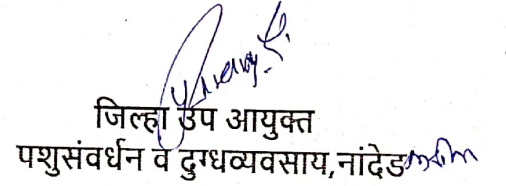 जिल्हा उप आयुक्त
पशुसंवर्धन व दुग्धव्यवसाय,नांदेड